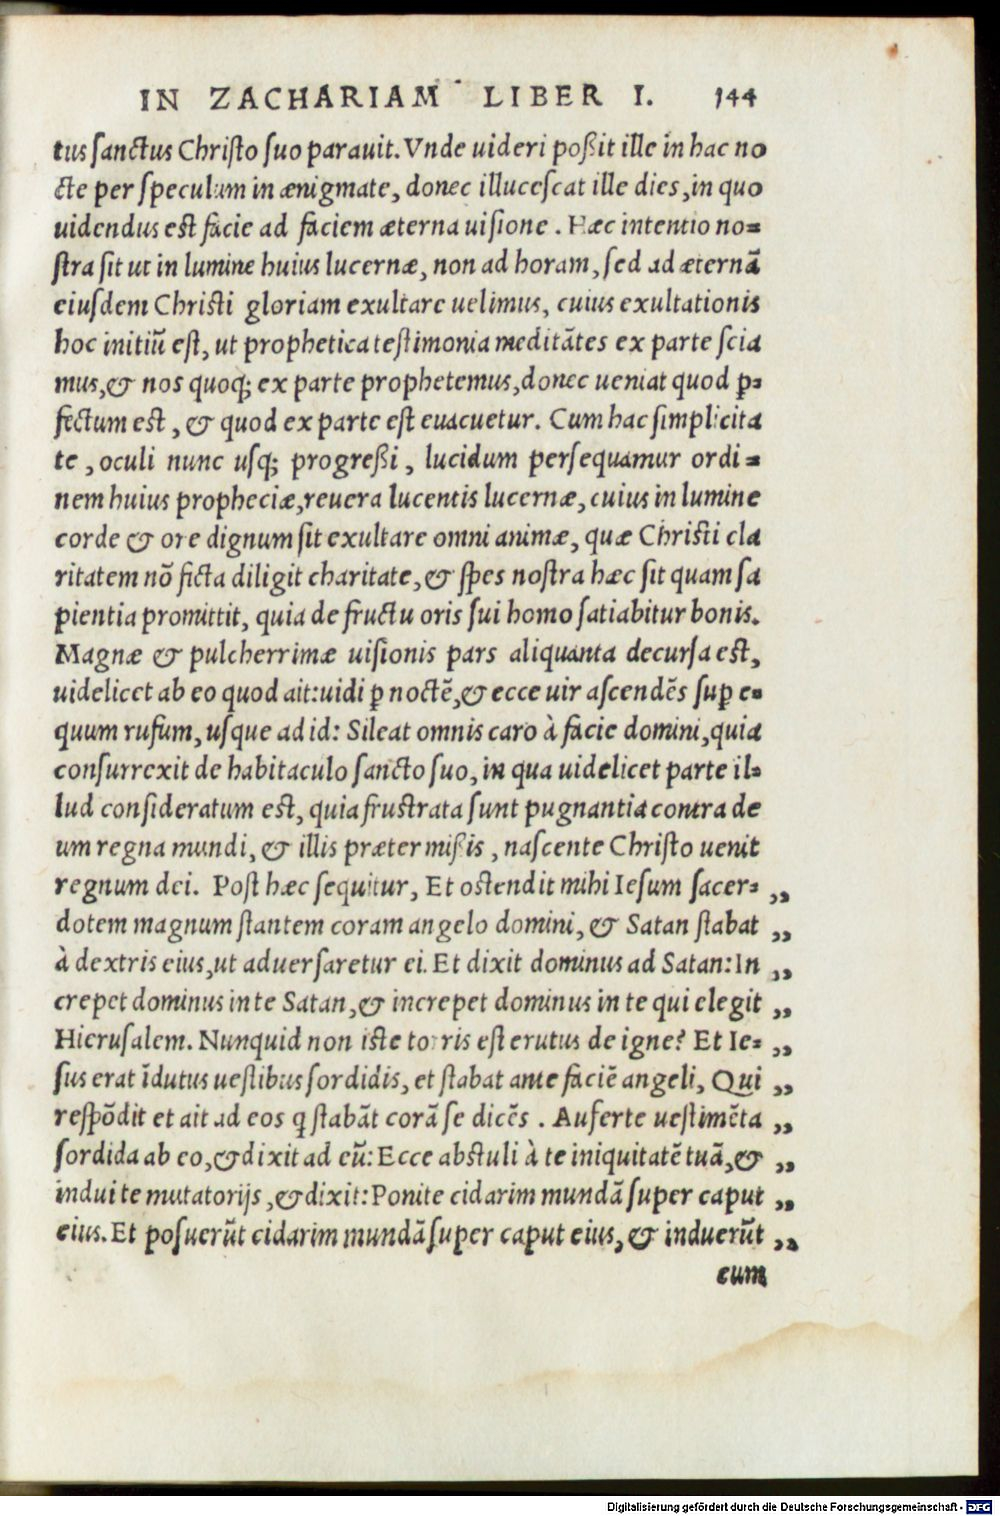 IN ZACHARIAM LIBER I. 144
tus sanctus Christo suo parauit. Vnde uideri poßit ille in hac no
cte per speculum in ænigmate, donec illucescat ille dies, in quo
uidendus est facie ad faciem æterna uisione. Hæc intentio no=
stra sit ut in lumine huius lucernæ, non ad horam, sed ad æternã
eiusdem Christi gloriam exultare uelimus, cuius exultationis
hoc initiũ est, ut prophetica testimonia meditãtes ex parte scia
mus, & nos quoq; ex parte prophetemus, donec ueniat quod ꝑ=
fectum est, & quod ex parte est euacuetur. Cum hac simplicita
te, oculi nunc usq; progreßi, lucidum persequamur ordi=
nem huius propheciæ, reuera lucentis lucernæ, cuius in lumine
corde & ore dignum sit exultare omni animæ, quæ Christi cla
ritatem nõ ficta diligit charitate, & spes nostra hæc sit quam sa
pientia promittit, quia de fructu oris sui homo satiabitur bonis.
Magnæ & pulcherrimæ uisionis pars aliquanta decursa est,
uidelicet ab eo quod ait: uidi ꝑ noctẽ, & ecce uir ascendẽs suꝑ e=
quum rufum, usque ad id: Sileat omnis caro à facie domini, quia
consurrexit de habitaculo sancto suo, in qua uidelicet parte il=
lud consideratum est, quia frustrata sunt pugnantia contra de
um regna mundi, & illis prætermißis, nascente Christo uenit
regnum dei. Post hæc sequitur, Et ostendit mihi Iesum sacer= ,,
dotem magnum stantem coram angelo domini, & Satan stabat ,,
à dextris eius, ut aduersaretur ei. Et dixit dominus ad Satan: In ,,
crepet dominus in te Satan, & increpet dominus in te qui elegit ,,
Hierusalem. Nunquid non iste torris est erutus de igne? Et Ie= ,,
sus erat ĩdutus uestibus sordidis, et stabat ante faciẽ angeli, Qui ,,
respõdit et ait ad eos q stabãt corã se dicẽs. Auferte uestimẽta ,,
sordida ab eo, & dixit ad eũ: Ecce abstuli à te iniquitatẽ tuã, & ,,
indui te mutatorijs, & dixit: Ponite cidarim mundã super caput ,,
eius. Et posuerũt cidarim mundã super caput eius, & induerũt ,,
eum
Digitalisierung gefördert durch die Deutsche Forschungsgemeinschaft - DFG